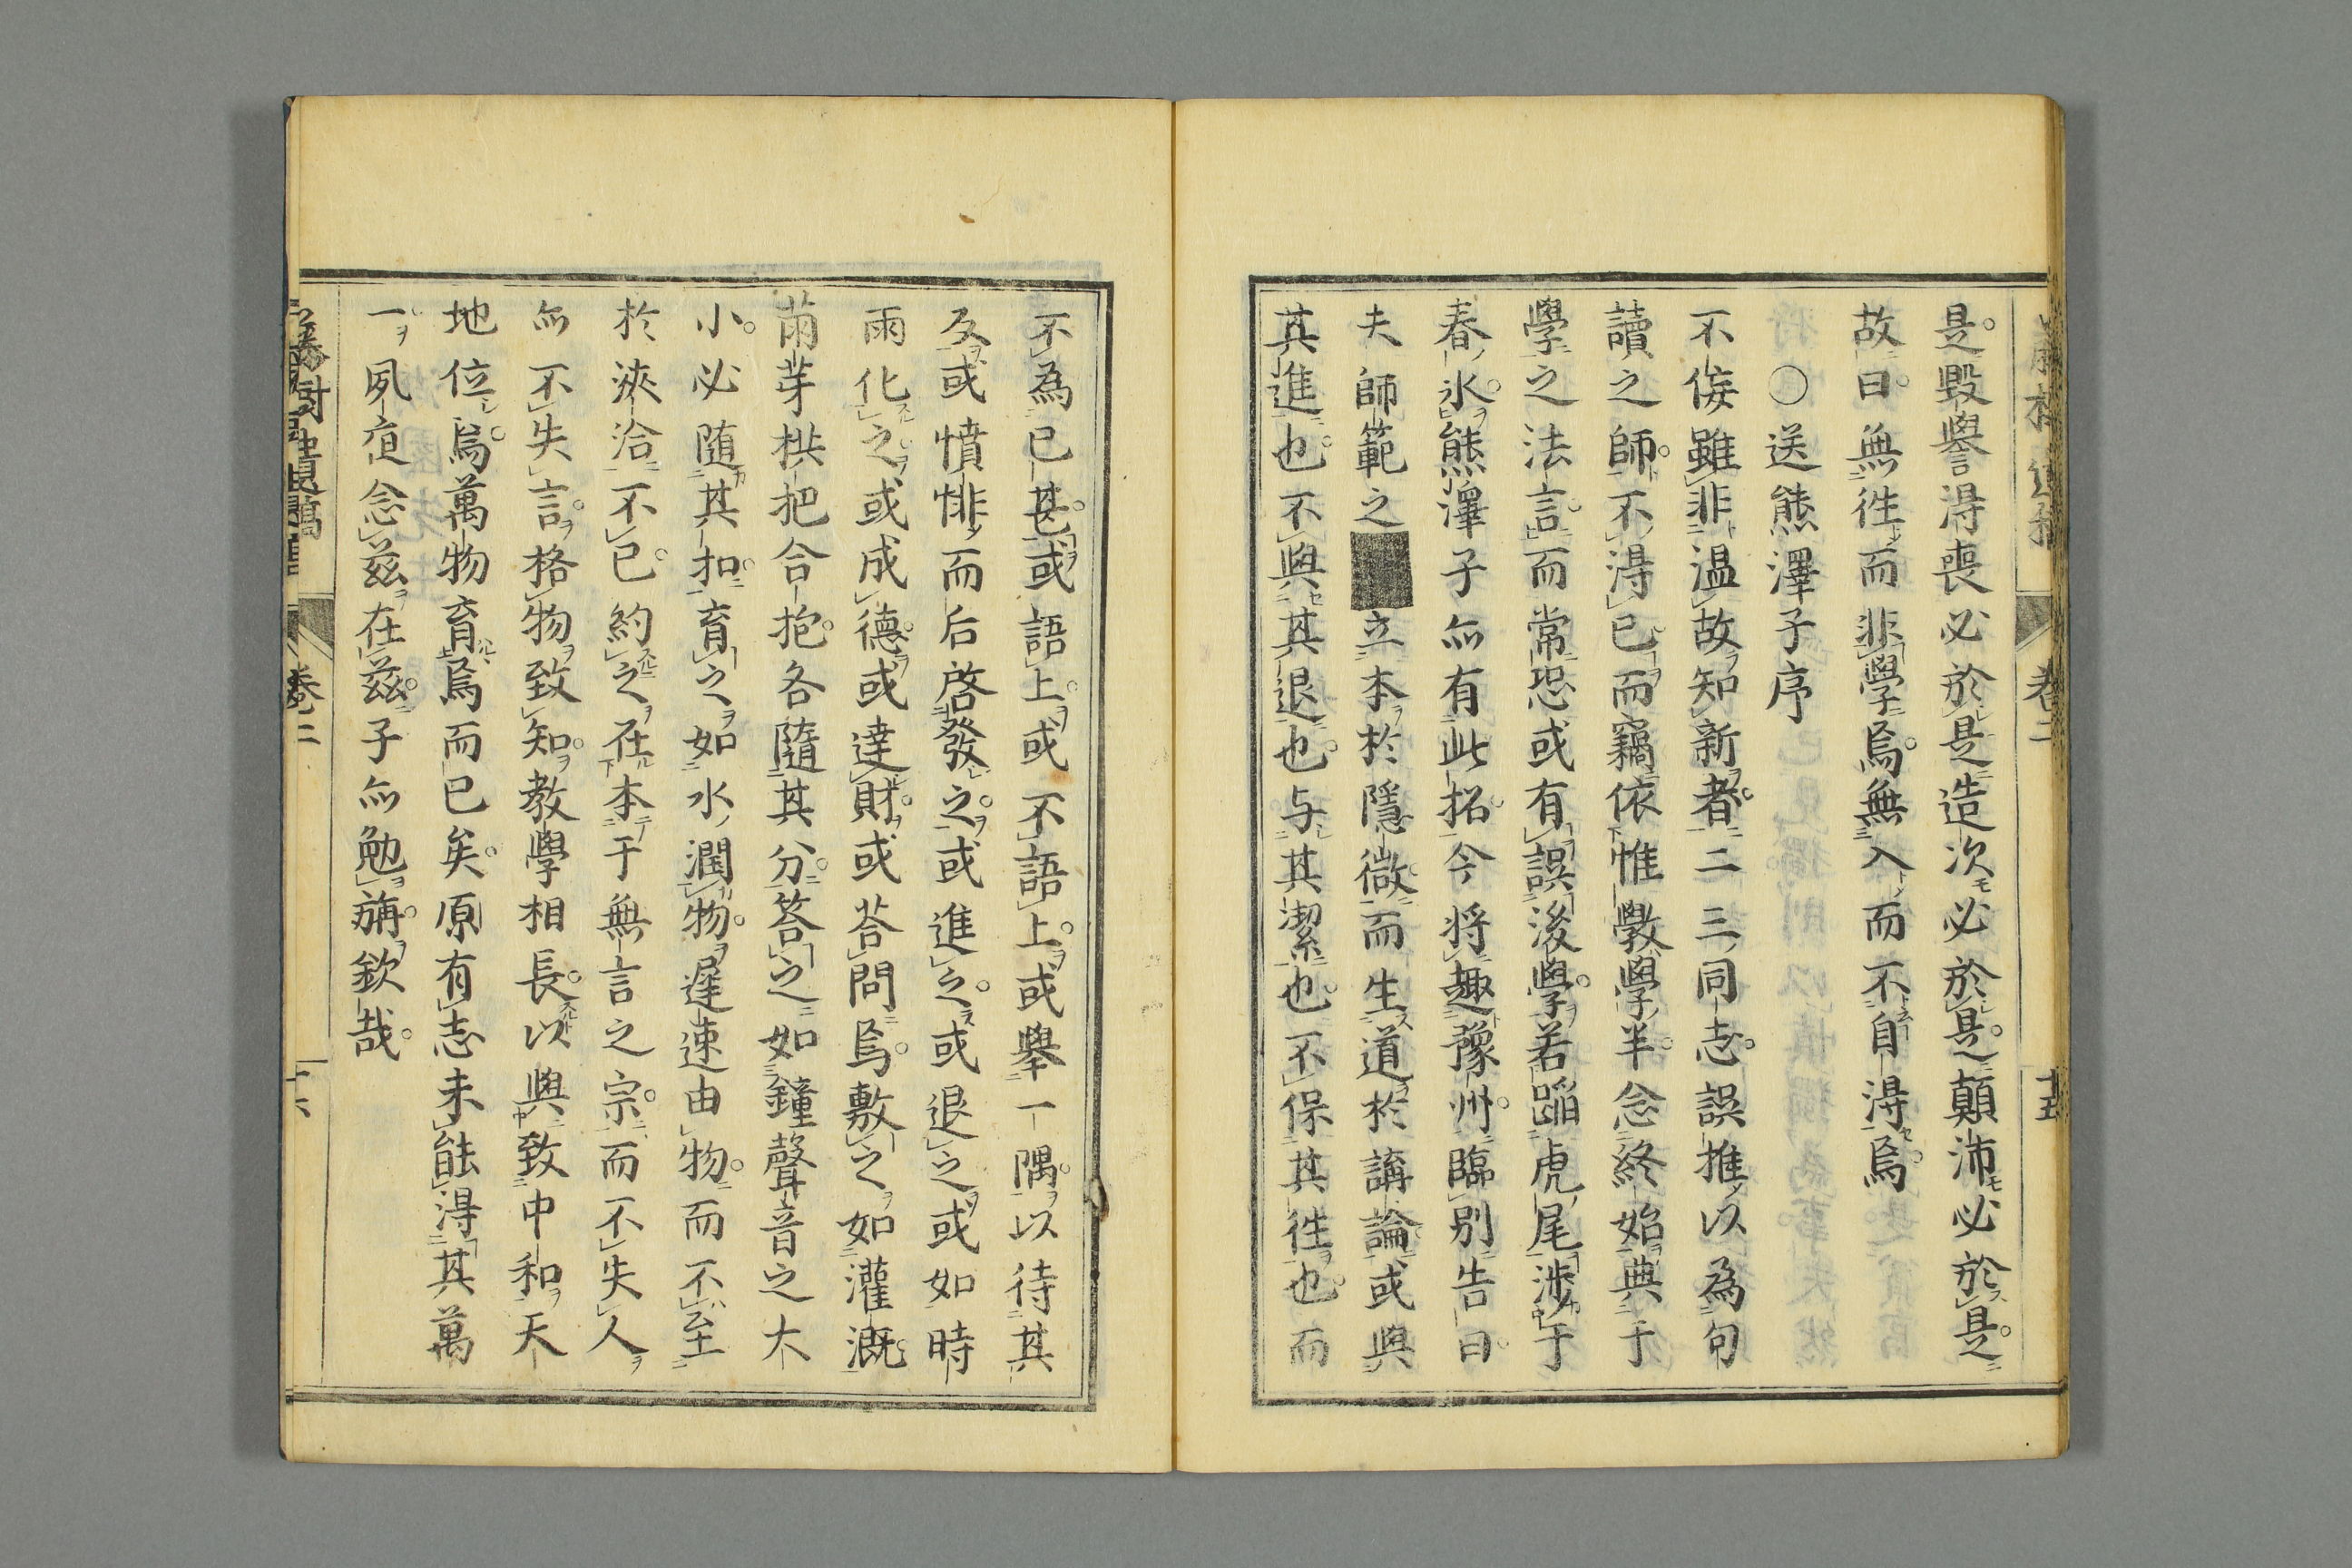 是毀譽淂喪必於是造次必於是顛沛必於是
故曰無徃而非學焉無入而不自淂焉
○送熊澤子序
不侫雖非温故知新者二三同志誤推以為句
讀之師不淂已而竊依惟斅學半念終始典于
學之法言而常恐或有誤後學若蹈虎尾渉于
春氷熊澤子亦有此招今将趣豫州臨别告曰
夫師範之立本於隱微而生道於講論或與
其進也不與其退也与其潔也不保其徃也而
不為已甚或語上或不語上或舉一隅以待其
反或憤悱而后啓發之或進之或退之或如時
雨化之或成德或達財或荅問焉敷之如灌漑
萠芽拱把合抱各隨其分答之如鐘聲音之大
小必随其扣育之如水潤物遲速由物而不至
於浹洽不已約之在本于無言之宗而不失人
亦不失言格物致知教學相長以與致中和天
地位焉萬物育焉而已矣原有志未能淂其萬
一夙夜念兹在兹子亦勉旃欽哉
卷二
十六
卷二
十五